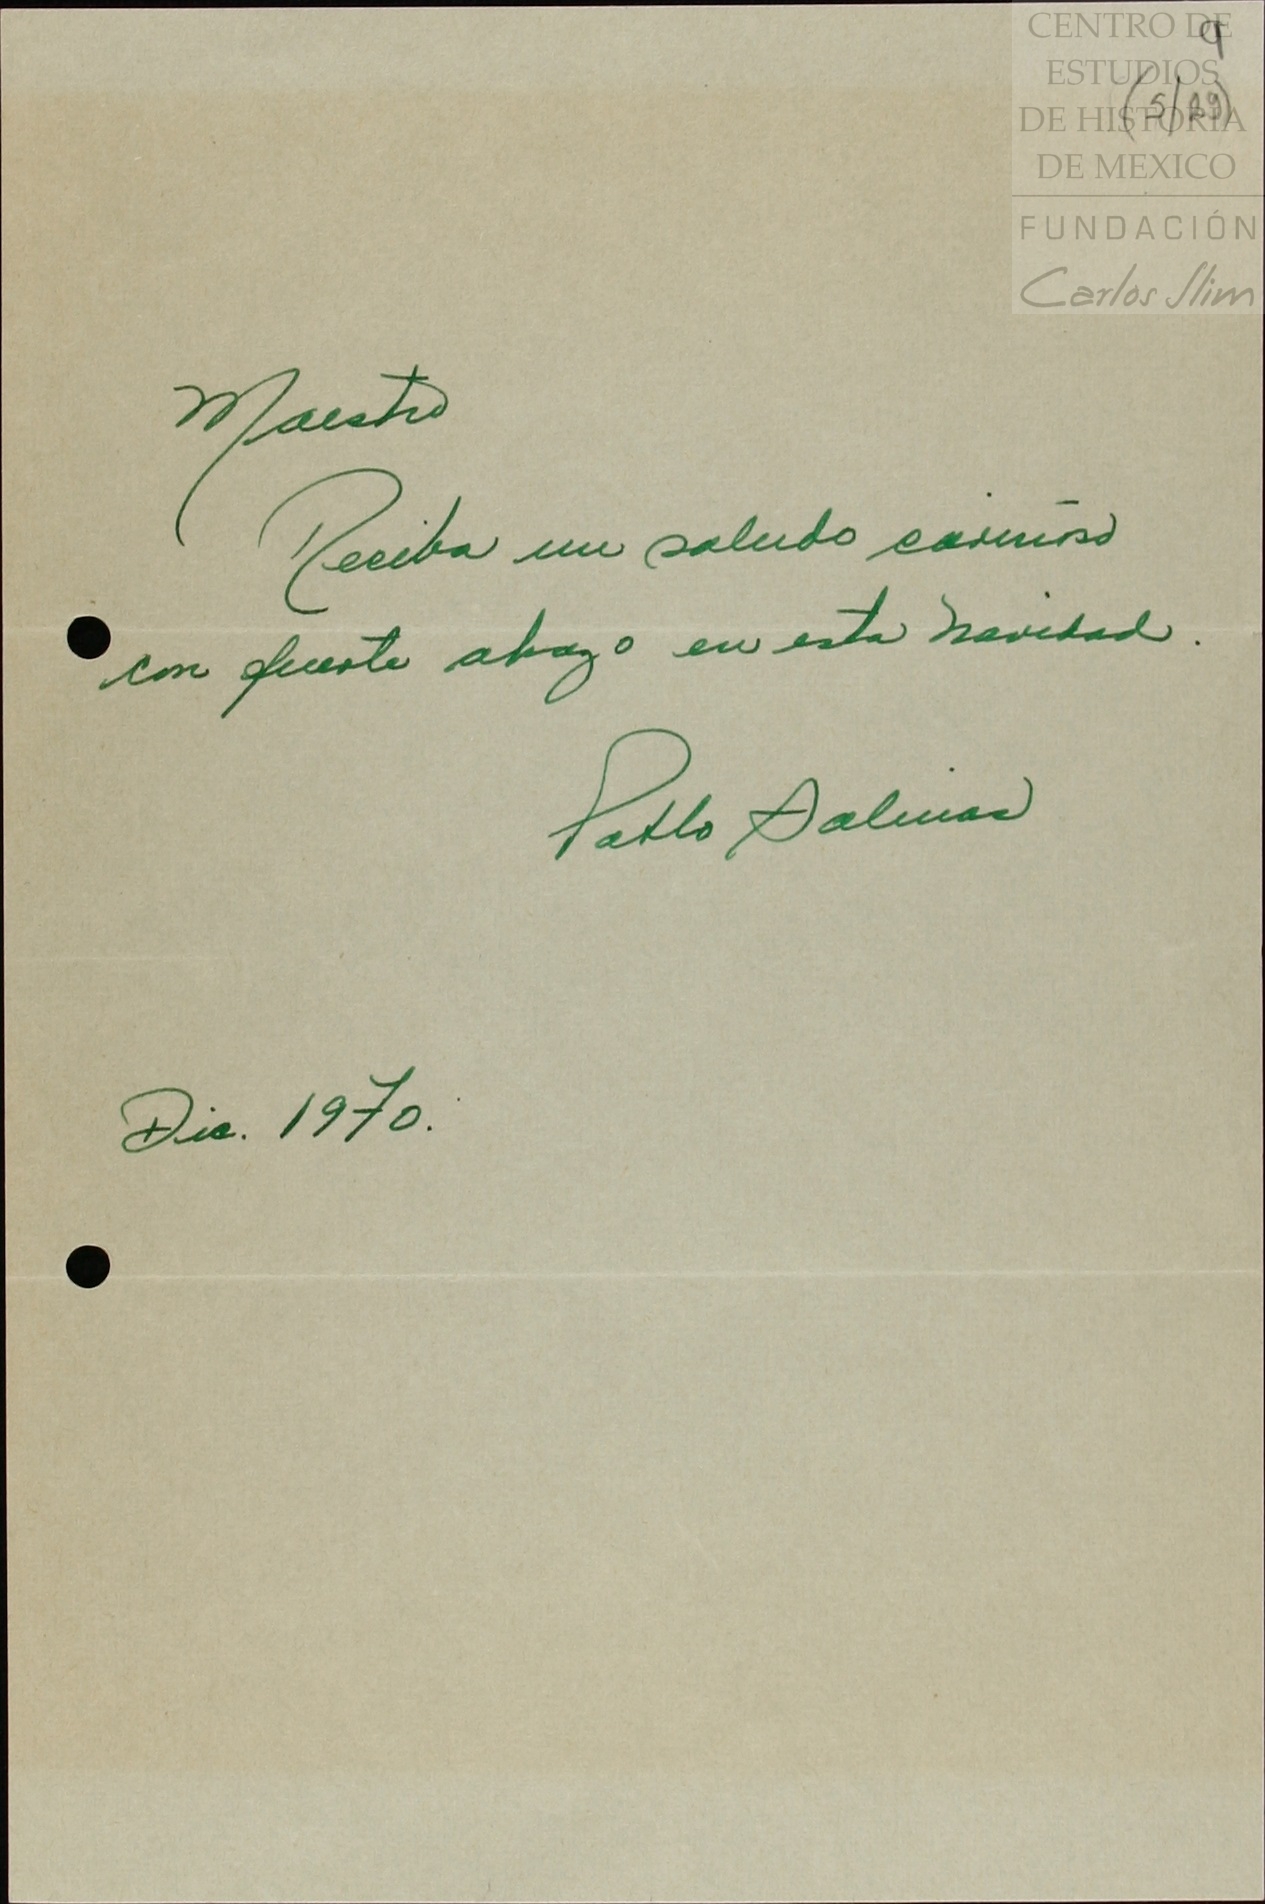 CENTRO DE
ESTUDIOS
DE HISTORIA
DE MEXICO
FUNDACIÓN
Carlos Slim
9
Maestro
Reciba un saludo cariñoso
con fuerte abrazo en esta navidad.
Pablo Salinas
Dic. 1970.